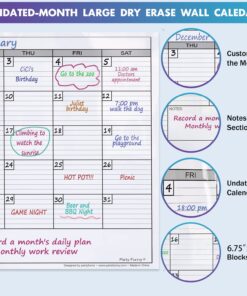 UNDATED-MONTH LARGE DRY ERASE WALL CALENDAR
THU
FRI
SAT
3
4
5
CiCi's
Birthday
Go to the zoo
11:00 am
Doctors
appointment
10
11
12
Juliet
birthday
7:00 am
Go to work
17
18
19
Climbing to
watch the
sunrise
Go to the
playground
24
25
26
HOT POT!!!
Picnic
29
30
31
GAME NIGHT
Beer and
BBQ Night
Record a month's daily plan
monthly work review
December
THU
3
Custom
the Mo
NOTES
Record a mon
Monthly w
Notes
Section
FRI
4
18:00 pm
Undat
Calen
16
6.75"
Blocks